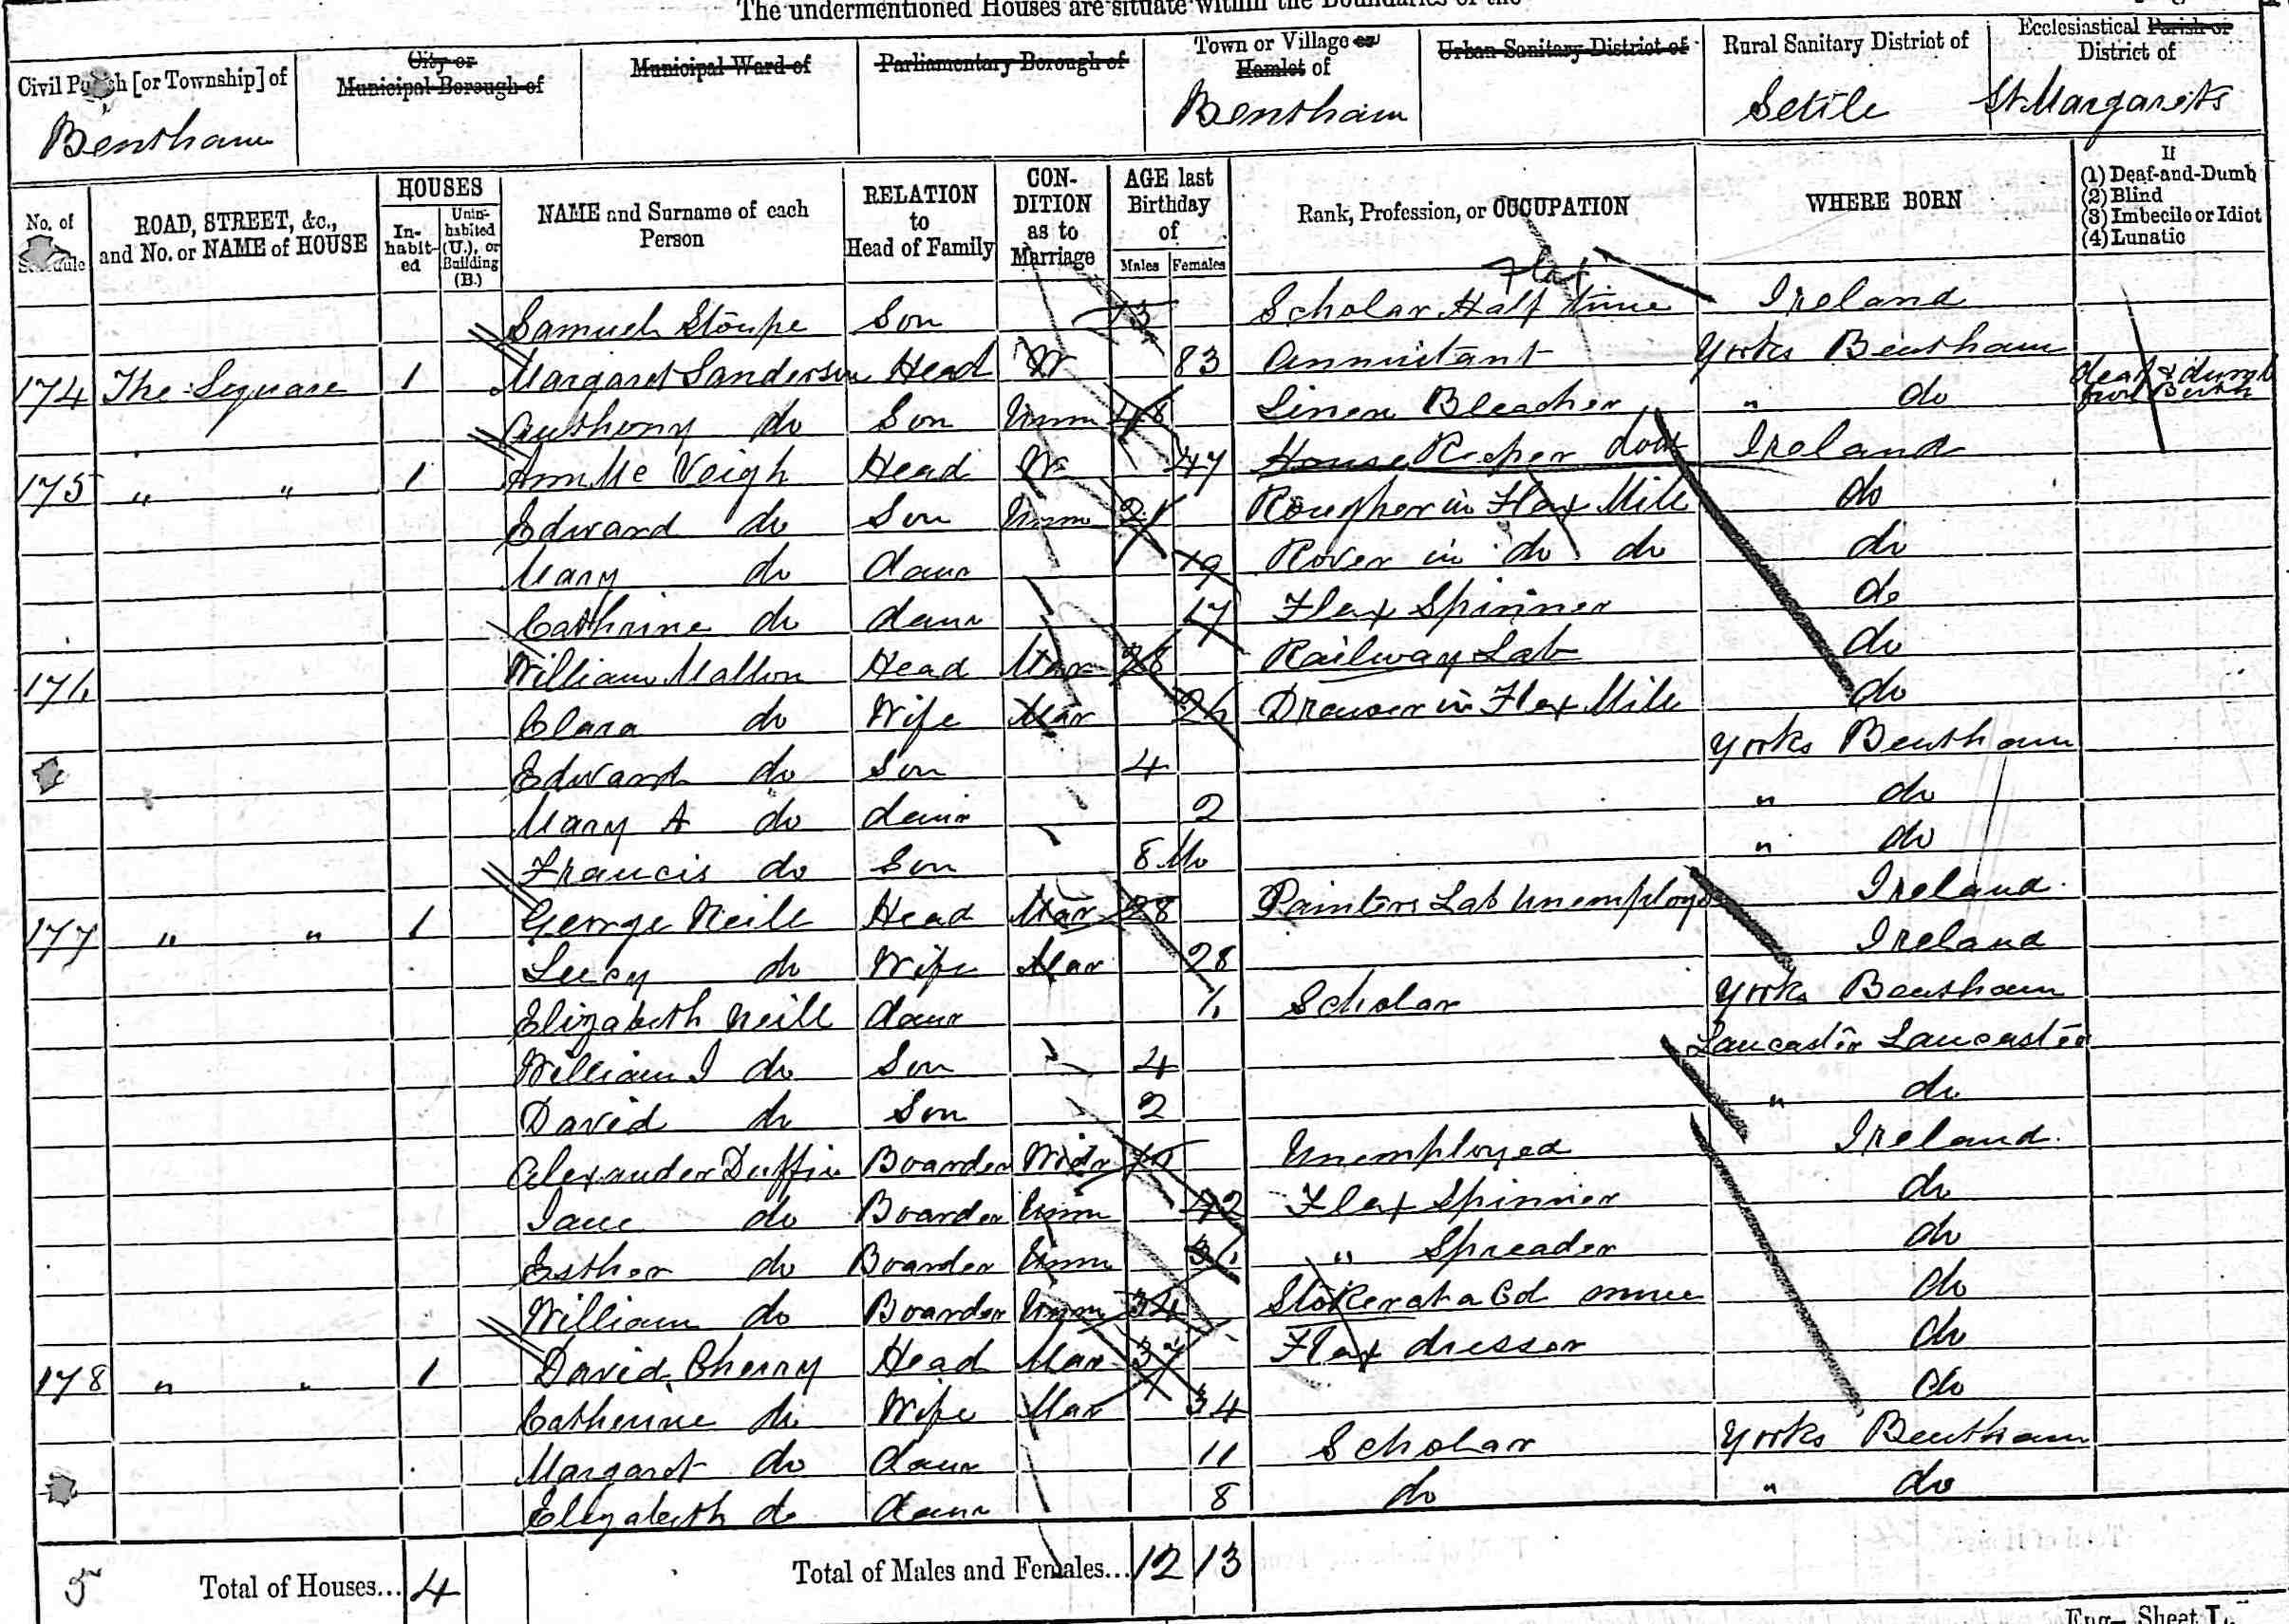 The undermentioned Houses are situate within the Boundaries of the
Civil Parish [or Township] of
Bentham
City or Municipal Borough of
Municipal Ward of
Parliamentary Borough of
Town or Village or Hamlet of
Bentham
Urban Sanitary District of
Rural Sanitary District of
Settle
Ecclesiastical Parish or District of
St Margarets
No. of Schedule
ROAD, STREET, &c., and No. or NAME of HOUSE
HOUSES
In-habit-ed
Unin-habited (U.), or Building (B.)
NAME and Surname of each Person
RELATION to Head of Family
CON-DITION as to Marriage
AGE last Birthday of
Males Females
Rank, Profession, or OCCUPATION
WHERE BORN
If
(1) Deaf-and-Dumb
(2) Blind
(3) Imbecile or Idiot
(4) Lunatic
Flax
Samuel Stoupe Son 13 Scholar Half time Ireland
174 The Square 1 Margaret Sanderson Head W 83 Annuitant Yorks Bentham
Anthony do Son Unm 48 Linen Bleacher " do deaf & dumb from Birth
175 " " 1 Ann Mc Veigh Head W 47 House Keeper Ireland
Edward do Son Unm 21 Rougher in Flax Mill do
Mary do daur 19 Rover in do do do
Cathrine do daur 17 Flax Spinner do
176 William Mallon Head Mar 28 Railway Lab do
Clara do Wife Mar 26 Drawer in Flax Mill do
Edward do Son 4 Yorks Bentham
Mary A do daur 2 " do
Francis do Son 8 Mo " do
177 " " 1 George Neill Head Mar 28 Painters Lab Unemployd Ireland
Lucy do Wife Mar 28 Ireland
Elizabeth Neill daur 6 Scholar Yorks Bentham
William J do Son 4 Lancaster Lancaster
David do Son 2 " do
Alexander Duffin Boarder Widr Unemployed Ireland
Jane do Boarder Unm 42 Flax Spinner do
Esther do Boarder Unm 36 " Spreader do
William do Boarder Unm 34 Stoker at a do
178 " " 1 David Cherry Head Mar 37 Flax dresser do
Catherine do Wife Mar 34 do
Margaret do daur 11 Scholar Yorks Bentham
Elizabeth do daur 8 do " do
5 Total of Houses... 4 Total of Males and Females... 12 13
Eng.— Sheet I.